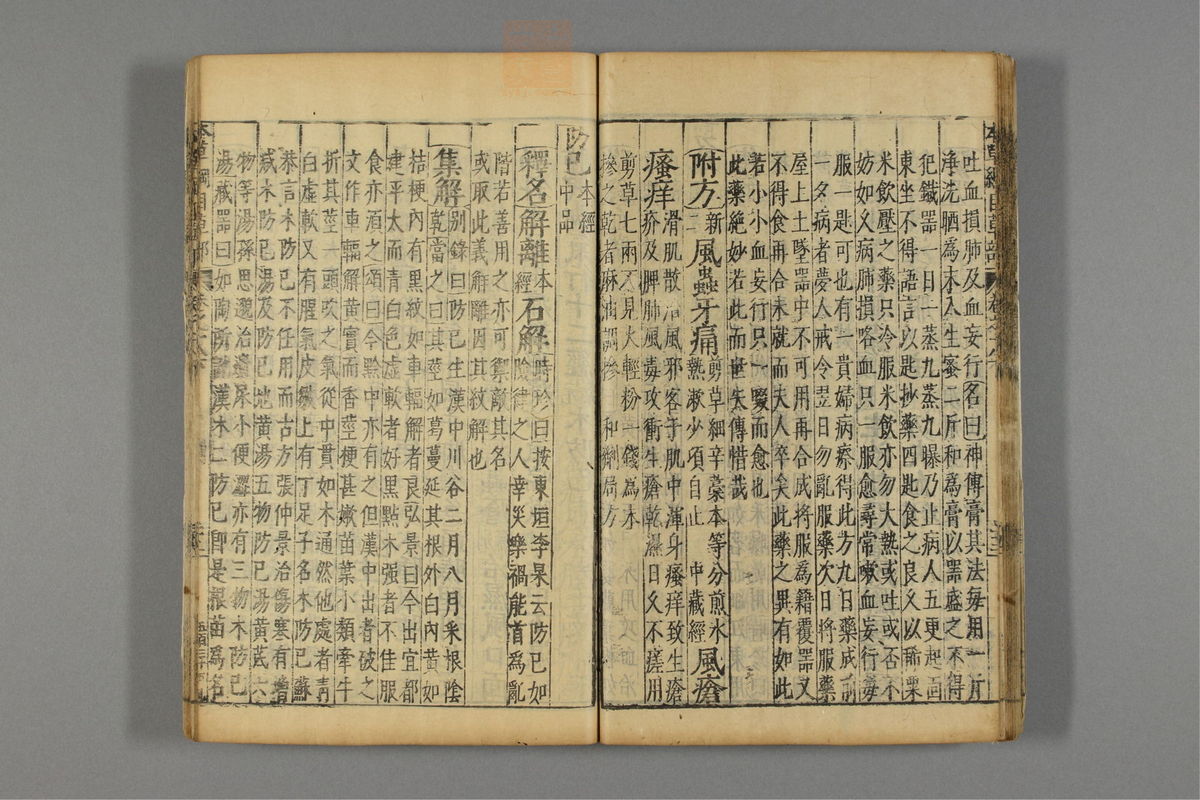 吐血損肺及血妄行名曰神傳膏其法每用一斤
淨洗晒為末入生蜜二斤和為膏以器盛之不得
犯鐵器一日一蒸九蒸九曝乃止病人五更起面
東坐不得語言以匙抄藥四匙食之良久以稀粟
米飲壓之藥只冷服米飲亦勿大熱或吐或否不
妨如久病肺損咯血只一服愈尋常嗽血妄行每
服一匙可也有一貴婦病瘵得此方九日藥成前
一夕病者夢人戒令翌日勿亂服藥次日將服藥
屋上土墜器中不可用再合成將服為籍覆器又
不得食再合未就而夫人卒矣此藥之異有如此
若小小血妄行只一啜而愈也
此藥絕妙若此而世失傳惜哉
附方新二風蟲牙痛剪草細辛藁本等分煎水熱漱少項自止 中藏經風瘡
瘙痒滑肌散治風邪客于肌中渾身瘙痒致生瘡疥及脾肺風毒攻衝生瘡乾濕日久不瘥用
剪草七兩不見火輕粉一錢為末
摻之乾者麻油調摻 和劑局方
防己本經中品
釋名解離本經石解時珍曰按東垣李杲云防己如險律之人幸災樂禍能首為亂
階若善用之亦可禦敵其名
或取此義解離因其紋解也
集解別錄曰防己生漢中川谷二月八月采根陰乾當之曰其莖如葛蔓延其根外白內黃如
桔梗內有黑紋如車輻解者良弘景曰今出宜都
建平大而青白色虛軟者好黑點木強者不佳服
食亦須之頌曰今黔中亦有之但漢中出者破之
文作車輻解黃實而香莖梗甚嫩苗葉小類牽牛
折其莖一頭吹之氣從中貫如木通然他處者青
白虛軟又有腥氣皮皺上有丁足子名木防己蘇
恭言木防己不任用而古方張仲景治傷寒有增
減木防己湯及防己地黃湯五物防己湯黃芪六
物等湯孫思邈治遺尿小便澀亦有三物木防己
湯藏器曰如陶所說漢木二防己即是根苗為名